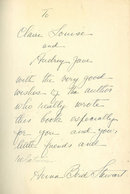 To
Claire Louise
and
Audrey Jane
with the very good
wishes of the author
who really wrote
this book especially
for you and your
little friends and
Anna Bird Stewart